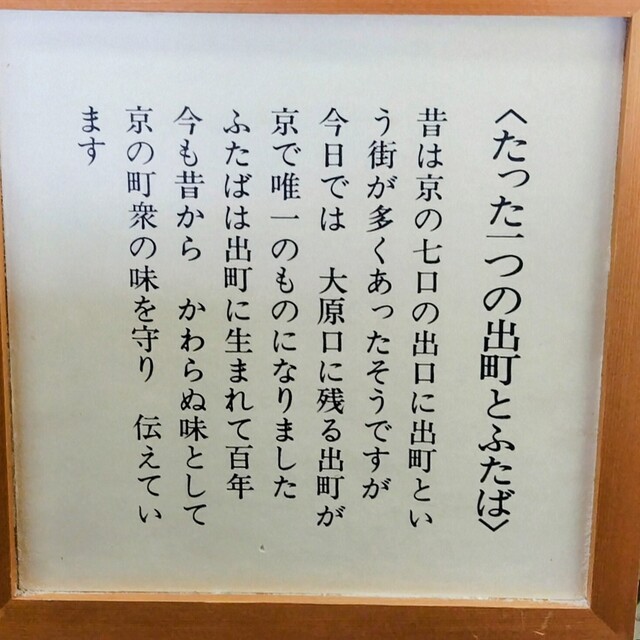 〈たった一つの出町とふたば〉
昔は京の七口の出口に出町とい
う街が多くあったそうですが
今日では　大原口に残る出町が
京で唯一のものになりました
ふたばは出町に生まれて百年
今も昔から　かわらぬ味として
京の町衆の味を守り　伝えてい
ます